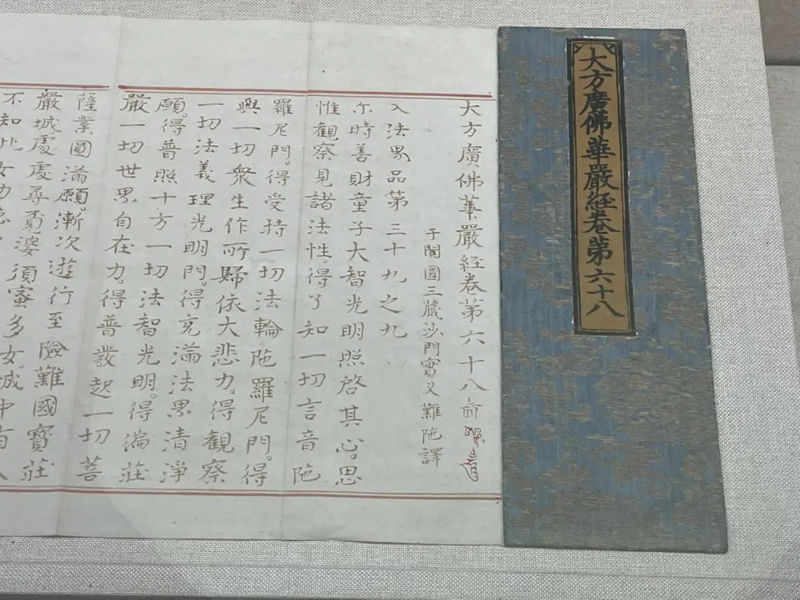 大方廣佛華嚴經卷第六十八
大方廣佛華嚴經卷第六十八
于闐國三藏沙門實叉難陁譯
入法界品第三十九之九
尒時善財童子大智光明照啓其心。思
惟觀察見諸法性得了知一切言音陁
羅尼門。得受持一切法輪陁羅尼門。得
與一切衆生作所歸依大悲力。得觀察
一切法義理光明門。得充滿法界清淨
願。得普照十方一切法智光明。得徧莊
嚴一切世界自在力。得普發起一切菩
薩業圓滿願。漸次遊行至險難國寶莊
嚴城處處尋覓婆須蜜多女。城中有人
不知此女功